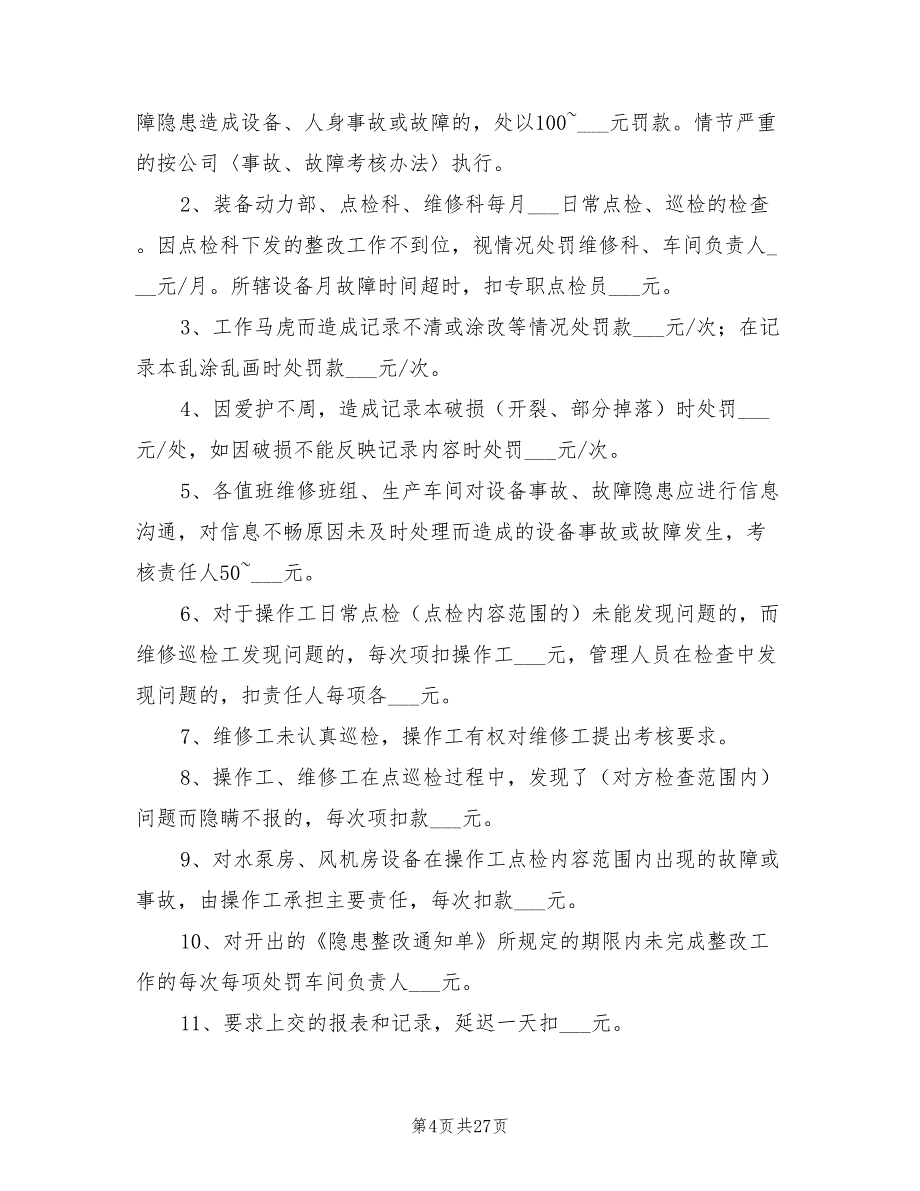 障隐患造成设备、人身事故或故障的，处以100~___元罚款。情节严重
的按公司〈事故、故障考核办法〉执行。
2、装备动力部、点检科、维修科每月___日常点检、巡检的检查
。因点检科下发的整改工作不到位，视情况处罚维修科、车间负责人_
__元/月。所辖设备月故障时间超时，扣专职点检员___元。
3、工作马虎而造成记录不清或涂改等情况处罚款___元/次；在记
录本乱涂乱画时处罚款___元/次。
4、因爱护不周，造成记录本破损（开裂、部分掉落）时处罚___
元/处，如因破损不能反映记录内容时处罚___元/次。
5、各值班维修班组、生产车间对设备事故、故障隐患应进行信息
沟通，对信息不畅原因未及时处理而造成的设备事故或故障发生，考
核责任人50~___元。
6、对于操作工日常点检（点检内容范围的）未能发现问题的，而
维修巡检工发现问题的，每次项扣操作工___元，管理人员在检查中发
现问题的，扣责任人每项各___元。
7、维修工未认真巡检，操作工有权对维修工提出考核要求。
8、操作工、维修工在点巡检过程中，发现了（对方检查范围内）
问题而隐瞒不报的，每次项扣款___元。
9、对水泵房、风机房设备在操作工点检内容范围内出现的故障或
事故，由操作工承担主要责任，每次扣款___元。
10、对开出的《隐患整改通知单》所规定的期限内未完成整改工
作的每次每项处罚车间负责人___元。
11、要求上交的报表和记录，延迟一天扣___元。
第4页共27页